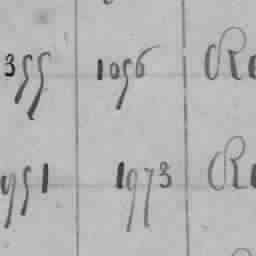 355 1056 R
951 1973 R